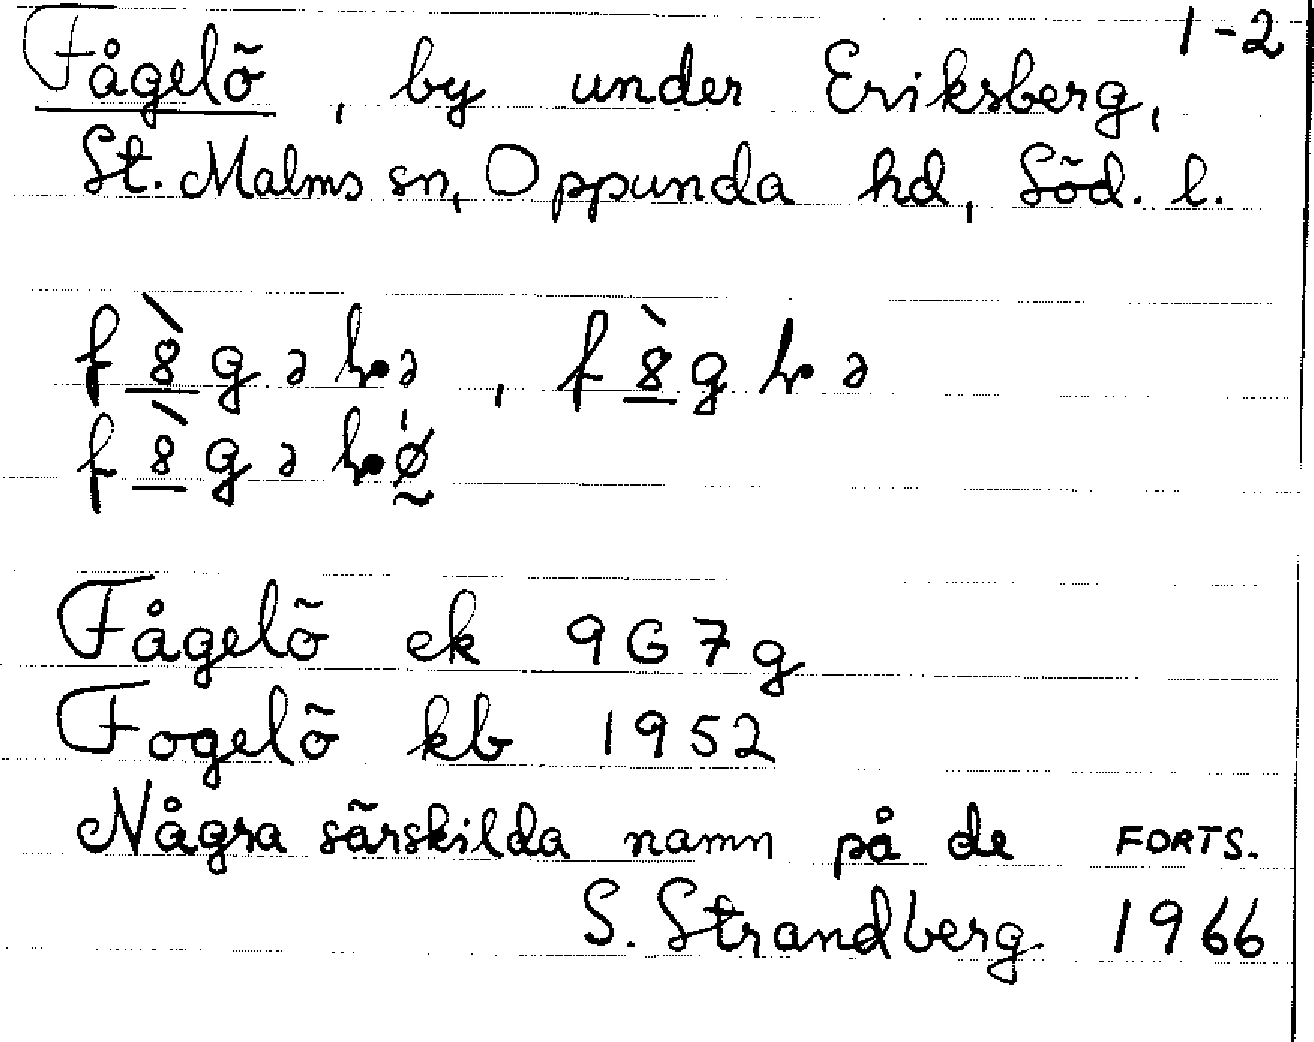 1-2
Fågelö, by under Eriksberg,
St. Malms sn, Oppunda hd, Söd. l.
Fågelö ek 9G7g
Fogelö kb 1952
Några särskilda namn på de FORTS.
S. Strandberg 1966